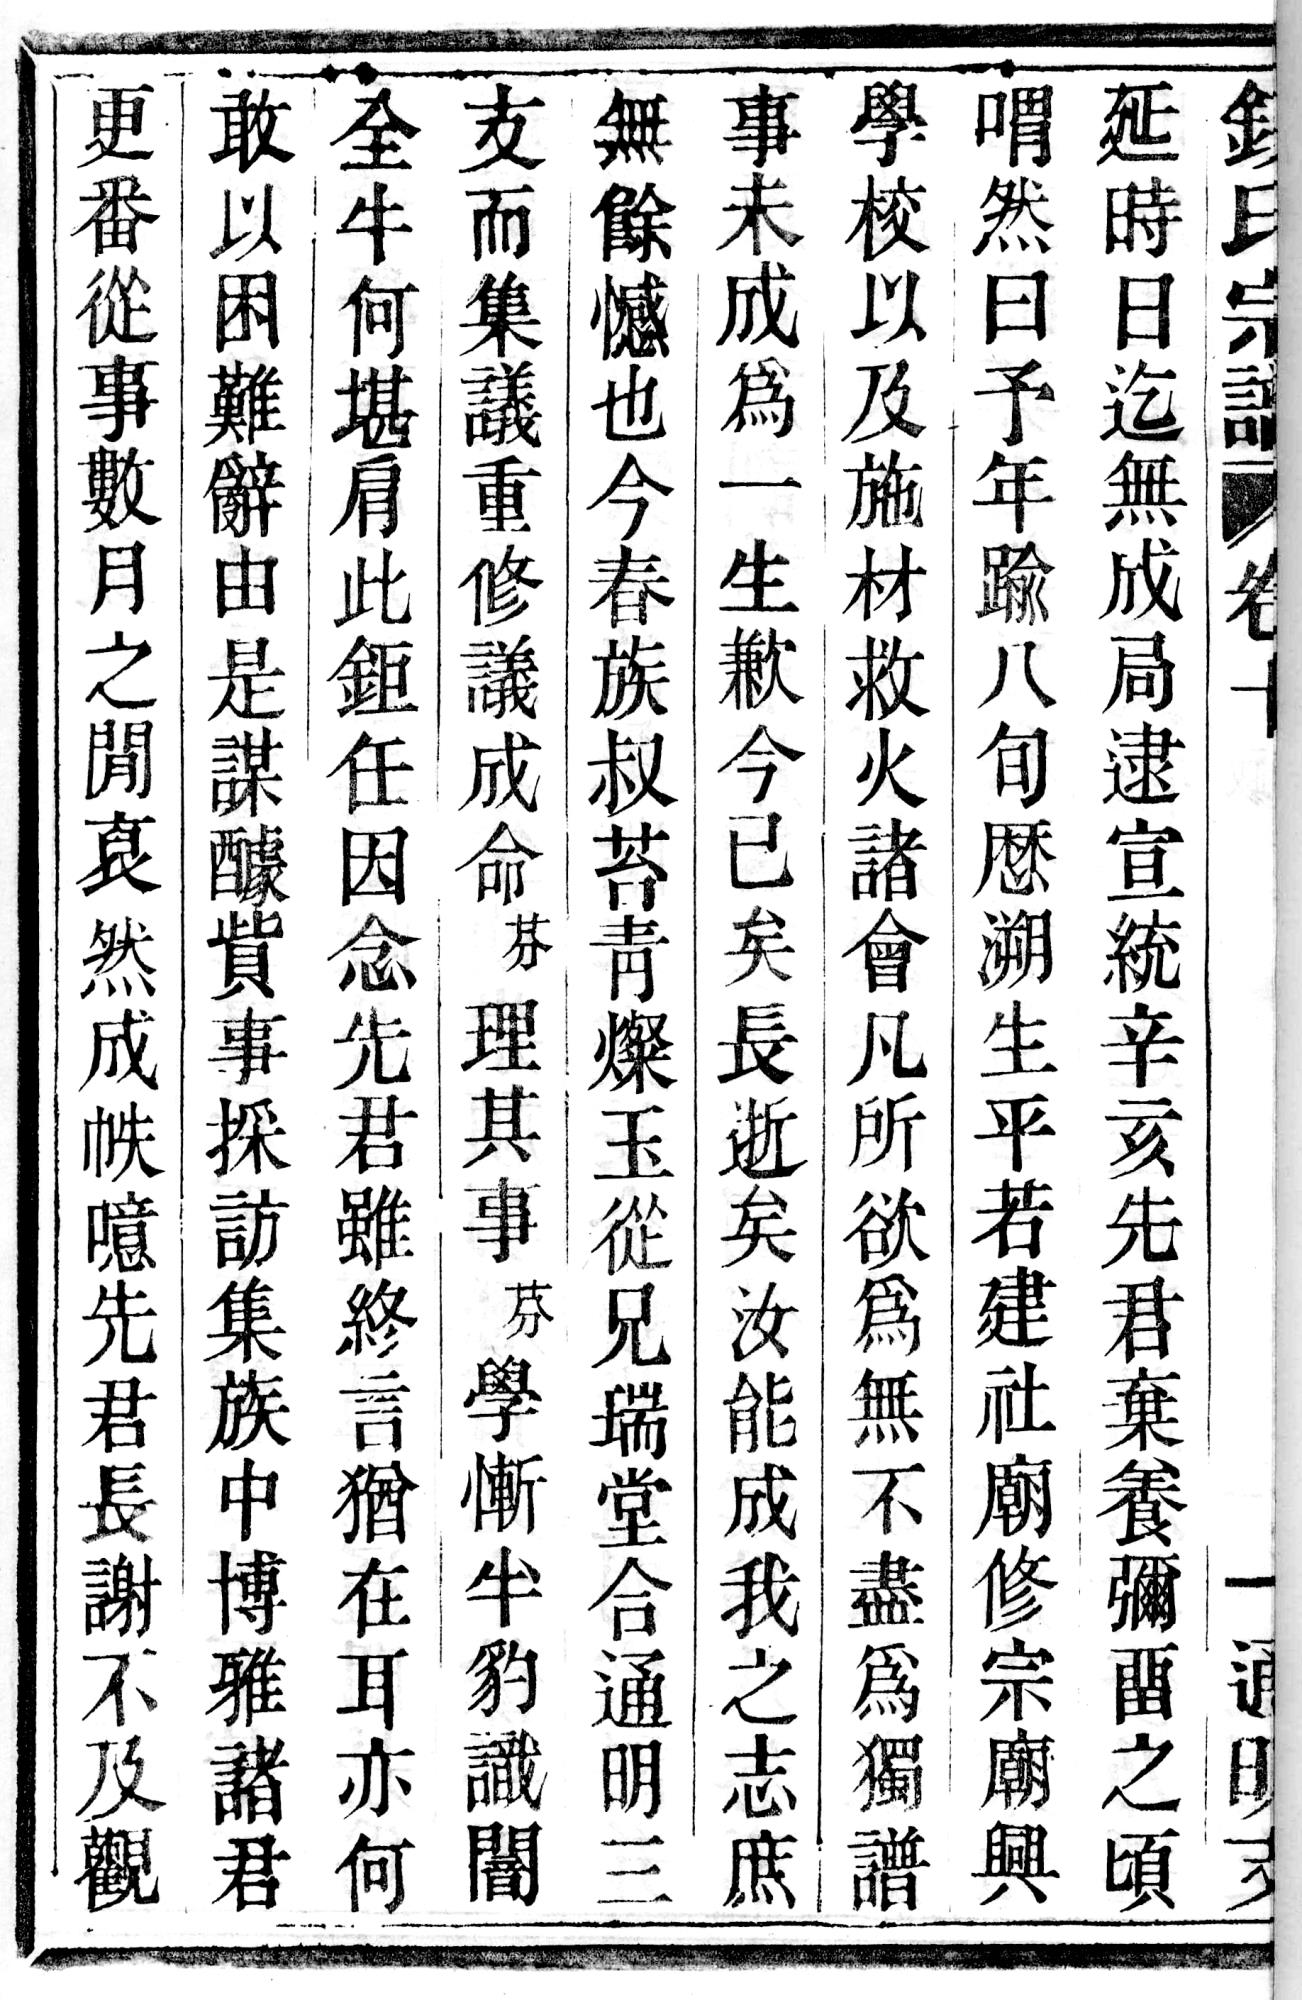 錢氏宗譜 卷十 一 通明支
延時日迄無成局逮宣統辛亥先君棄養彌畱之頃
喟然曰予年踰八旬歴溯生平若建社廟修宗廟興
學校以及施材救火諸會凡所欲爲無不盡爲獨譜
事未成爲一生歉今已矣長逝矣汝能成我之志庶
無餘憾也今春族叔苔青燦玉從兄瑞堂合通明三
支而集議重修議成命芬理其事芬學慚半豹識闇
全牛何堪肩此鉅任因念先君雖終言猶在耳亦何
敢以困難辭由是謀醵貲事採訪集族中博雅諸君
更番從事數月之閒裒然成帙噫先君長謝不及觀